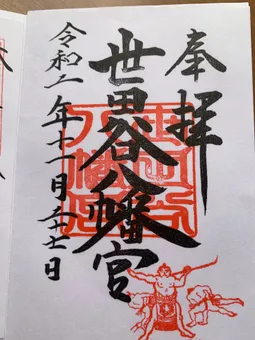 奉拝
世田谷八幡宮
令和二年十一月二十七日